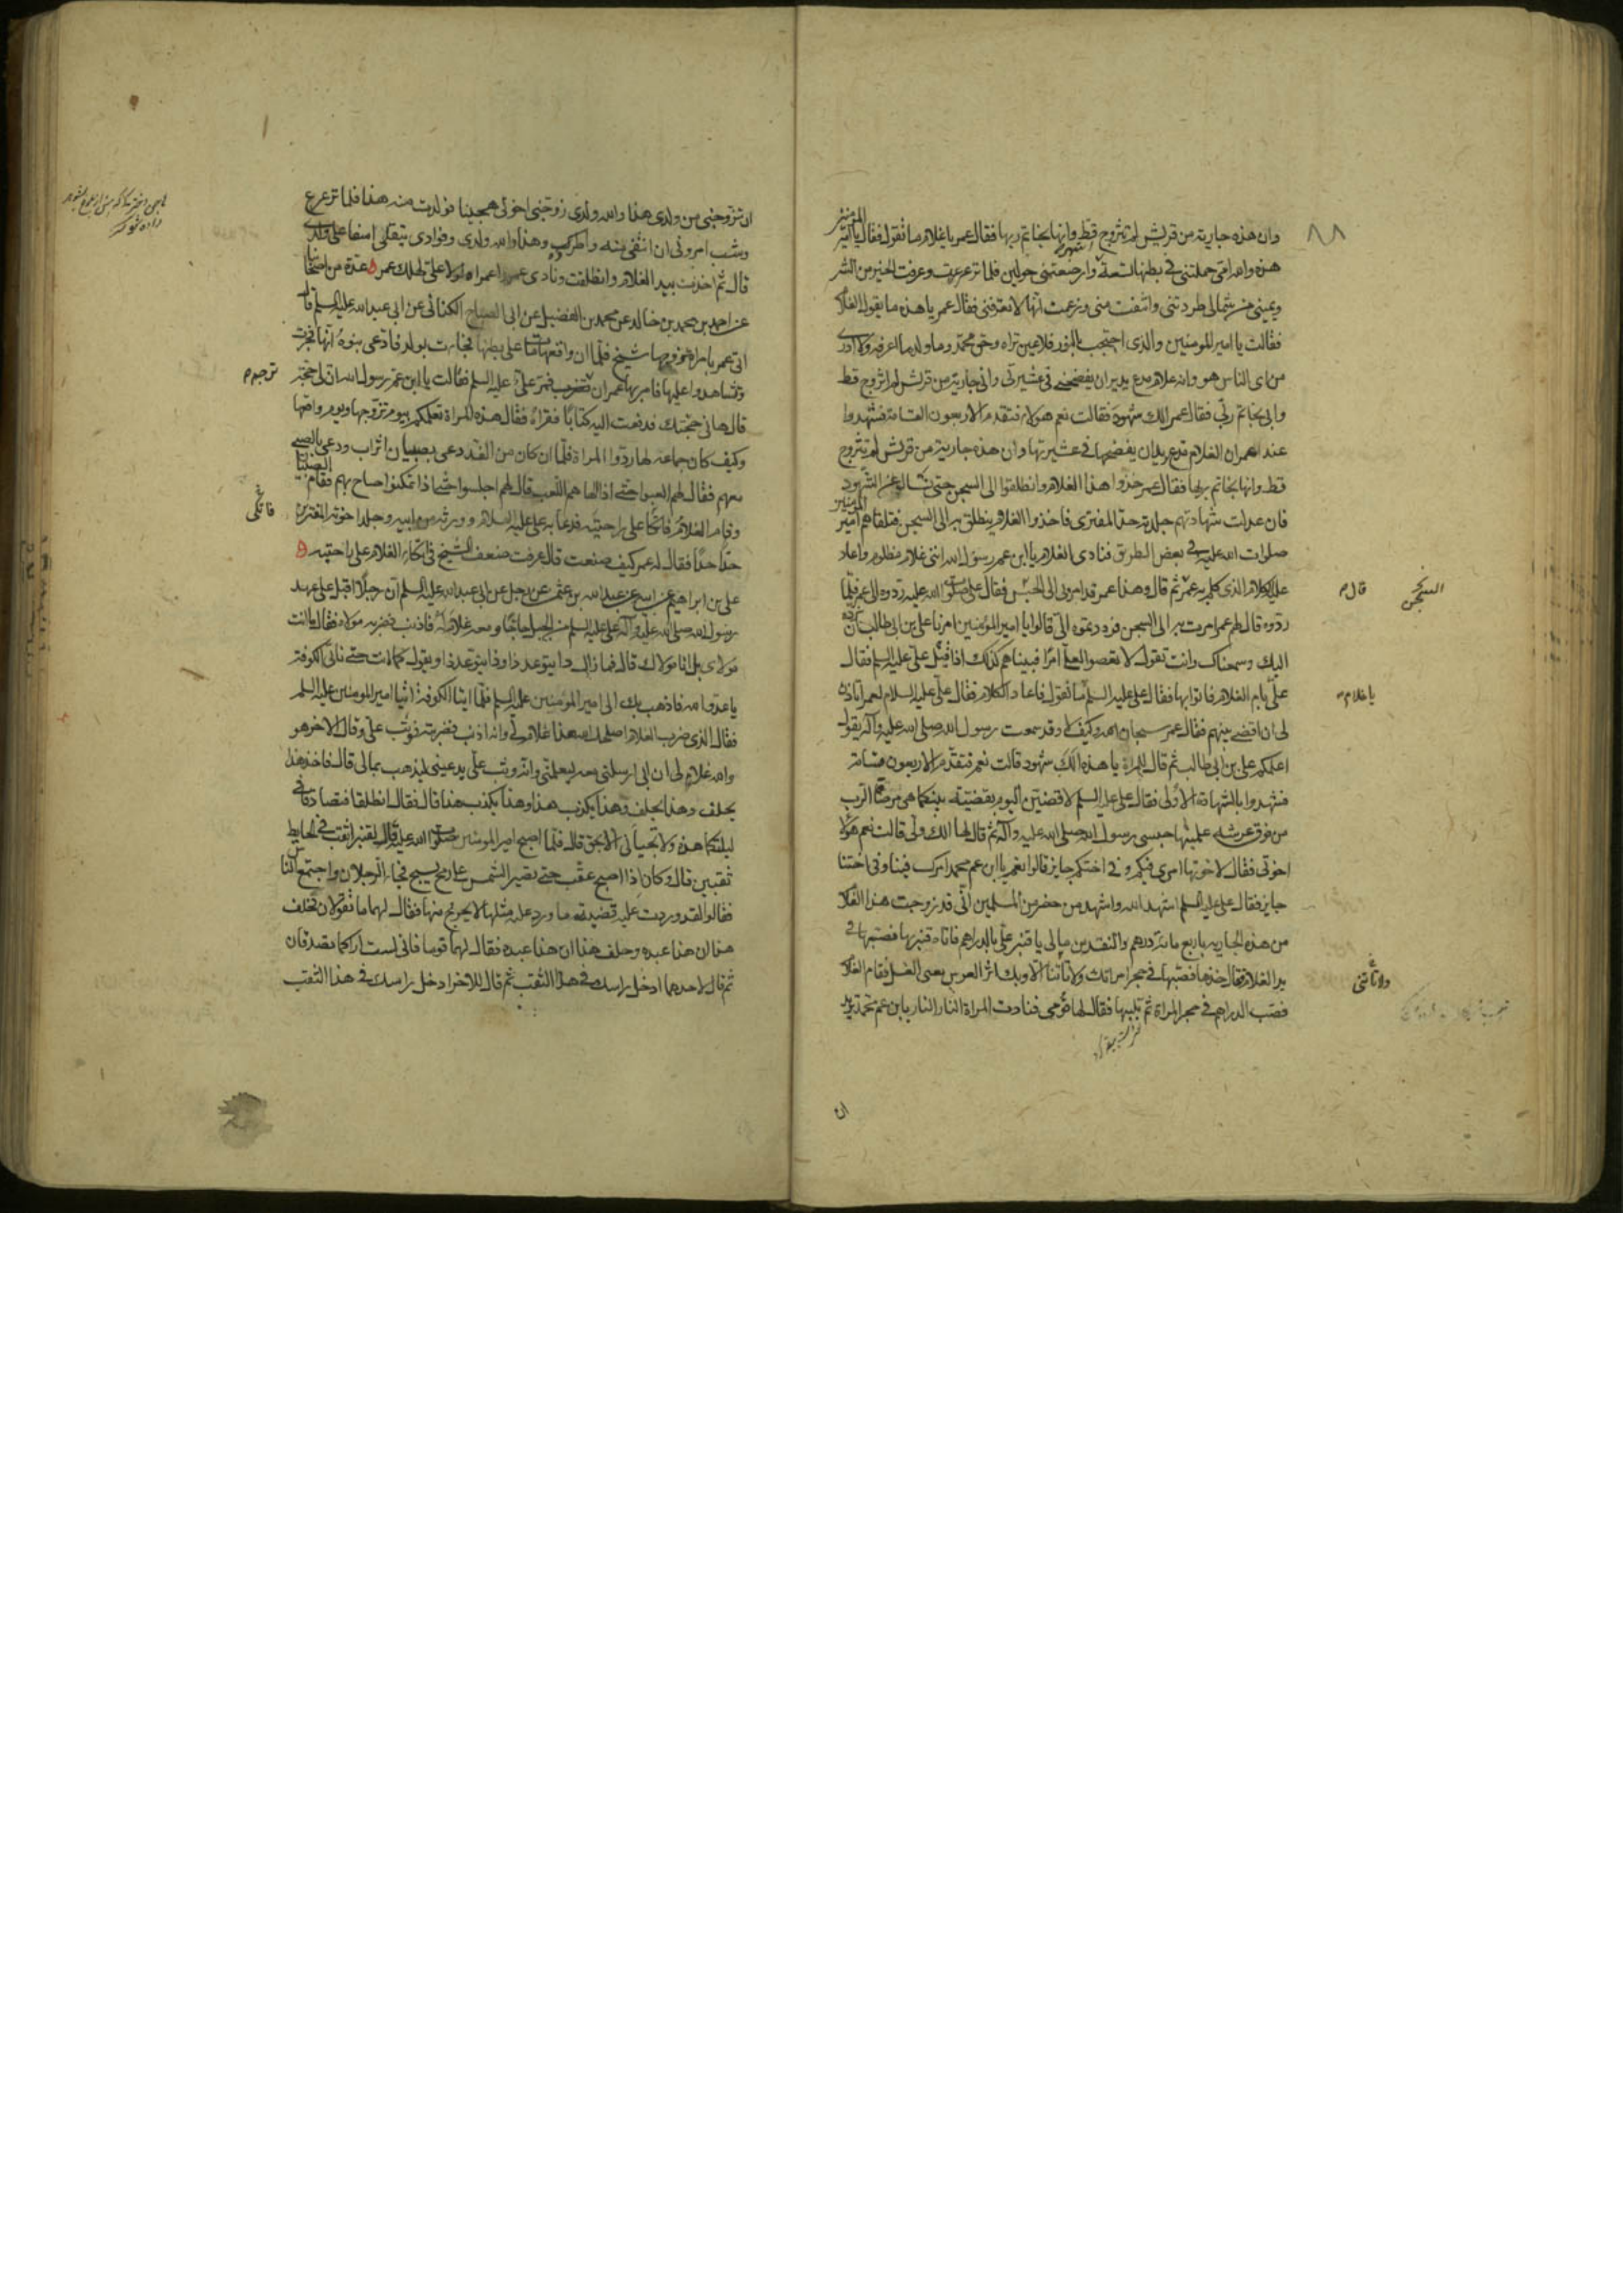 ٨٨
وان هذه جارية من قريش لم تتزوج قط وانها بخاتم ربها فقال عمر يا غلام ما تقول فقال يا امير المؤمنين
هذه والله امي حملتني في بطنها تسعة اشهر وارضعتني حولين فلما ترعرعت وعرفت الخير من الشر
ويميني من شمالي طردتني وانتفت مني وزعمت انها لا تعرفني فقال عمر يا هذه ما يقول الغلام
فقالت يا امير المومنين والذي احتجب بالنور فلا عين تراه وحق محمد وما ولد ما اعرفه ولا ادري
من اي الناس هو وانه غلام مدع يريد ان يفضحني في عشيرتي واني جارية من قريش لم اتزوج قط
واني بخاتم ربي فقال عمر الك شهود فقالت نعم هولاء فتقدم الاربعون القسامة فشهدوا
عند عمر ان الغلام مدع يريد ان يفضحها في عشيرتها وان هذه جارية من قريش لم تتزوج
قط وانها بخاتم ربها فقال عمر خذوا هذا الغلام وانطلقوا الى السجن حتى نسال عن الشهود
فان عدلت شهادتهم جلدته حد المفتري فاخذوا الغلام ينطلق به الى السجن فتلقاهم امير المومنين
صلوات الله عليه في بعض الطريق فنادى الغلام يا ابن عم رسول الله انني غلام مظلوم واعاد
عليه الكلام الذي كلم به عمر ثم قال وهذا عمر قد امر بي الى الحبس فقال علي صلوات الله عليه ردوه الى عمر فلما
السجن
قال
ردوه قال لهم عمر امرت به الى السجن فرددتموه الي قالوا يا امير المؤمنين امرنا علي بن ابي طالب ان نرده
اليك وسمعناك وانت تقول لا تعصوا لعلي امرا فبينا هم كذلك اذ اقبل علي عليه السلم فقال
علي بام الغلام فاتوا بها فقال علي عليه السلم ما تقول فاعاد الكلام فقال علي عليه السلام لعمر اتاذن
يا غلام
لي ان اقضي بينهم فقال عمر سبحان الله وكيف لا وقد سمعت رسول الله صلى الله عليه وآله يقول
اعلمكم علي بن ابي طالب ثم قال للمراة يا هذه الك شهود قالت نعم فتقدم الاربعون قسامة
فشهدوا بالشهادة الاولى فقال علي عليه السلم لاقضين اليوم بقضية بينكما هي مرضاة الرب
من فوق عرشه علمنيها حبيبي رسول الله صلى الله عليه وآله ثم قال لها الك ولي قالت نعم هولاء
اخوتي فقال لاخوتها امري فيكم وفي اختكم جايز قالوا نعم يا ابن عم محمد امرك فينا وفي اختنا
جايز فقال علي عليه السلم اشهد الله واشهد من حضر من المسلمين اني قد زوجت هذا الغلام
من هذه الجارية باربع مائة درهم والنقد من مالي يا قنبر علي بالدراهم فاتاه قنبر بها فصبها في
يد الغلام فقال خذها فصبها في حجر امراتك ولا تاتنا الا وبك اثر العرس يعني الغسل فقام الغلام
ولا تاتني
فصب الدراهم في حجر المراة ثم تلببها فقال لها قومي فنادت المراة النار النار يا ابن عم محمد تريد
ان
ان تزوجني من ولدي هذا والله ولدي زوجني اخوتي هجينا فولدت منه هذا فلما ترعرع
وشب امروني ان انتفي منه واطرده وهذا والله ولدي وفوادي يتقلى اسفا على ولدي
قال ثم اخذت بيد الغلام وانطلقت ونادى عمر واعمراه لولا علي لهلك عمر ه عدة من اصحابنا
عن احمد بن محمد بن خالد عن محمد بن الفضيل عن ابي الصباح الكناني عن ابي عبد الله عليه السلم قال
اتي عمر بامراة تزوجها شيخ فلما ان واقعها مات على بطنها فجاءت بولد فادعى بنوه انها فجرت
وتشاهدوا عليها فامر بها عمر ان ترجم فمر بها علي عليه السلم فقالت يا ابن عم رسول الله ان لي حجة
ترجم
قال هاتي حجتك فدفعت اليه كتابا فقراه فقال هذه المراة تعلمكم بيوم تزوجها ويوم واقعها
وكيف كان جماعه لها ردوا المراة فلما ان كان من الغد دعى بصبيان اتراب ودعى بالصبي
معهم فقال لهم العبوا حتى اذا الهاهم اللعب قال لهم اجلسوا حتى اذا تمكنوا صاح بهم فقام الصبيان
وقام الغلام فاتكا على راحتيه فدعا به علي عليه السلام وورثه من ابيه وجلد اخوته المفترين
فاتكى
حدا حدا فقال له عمر كيف صنعت قال عرفت ضعف الشيخ في اتكاء الغلام على راحتيه ه
علي بن ابراهيم عن ابيه عن عبد الله بن عثمن عن رجل عن ابي عبد الله عليه السلم ان رجلا اقبل على عهد
علي عليه السلم من الجبل حاجا ومعه غلام له فاذنب فضربه مولاه فقال ما انت
مولاي بل انا مولاك قال فما زال ذا يتوعد ذا وذا يتوعد ذا ويقول كما انت حتى ناتي الكوفة
يا عدو الله فاذهب بك الى امير المؤمنين عليه السلم فلما اتيا الكوفة اتيا امير المومنين عليه السلم
فقال الذي ضرب الغلام اصلحك الله هذا غلام لي وانه اذنب فضربته فوثب علي وقال الاخر هو
والله غلام لي ان ابي ارسلني معه ليعلمني وانه وثب علي يدعيني ليذهب بمالي قال فاخذ هذا
يحلف وهذا يحلف وهذا يكذب هذا وهذا يكذب هذا قال فقال انطلقا فتصادقا في
ليلتكما هذه ولا تجياني الا بحق قال فلما اصبح امير المومنين صلوات الله عليه قال لقنبر اثقب في الحايط
ثقبين قال وكان اذا اصبح عقب حتى تصير الشمس على رمح يسبح فجاء الرجلان واجتمع الناس
فقالوا لقد وردت عليه قضية ما ورد عليه مثلها لا يخرج منها فقال لهما ما تقولان فحلف
هذا ان هذا عبده وحلف هذا ان هذا عبده فقال لهما قوما فاني لست اراكما تصدقان
ثم قال لاحدهما ادخل راسك في هذا الثقب ثم قال للاخر ادخل راسك في هذا الثقب